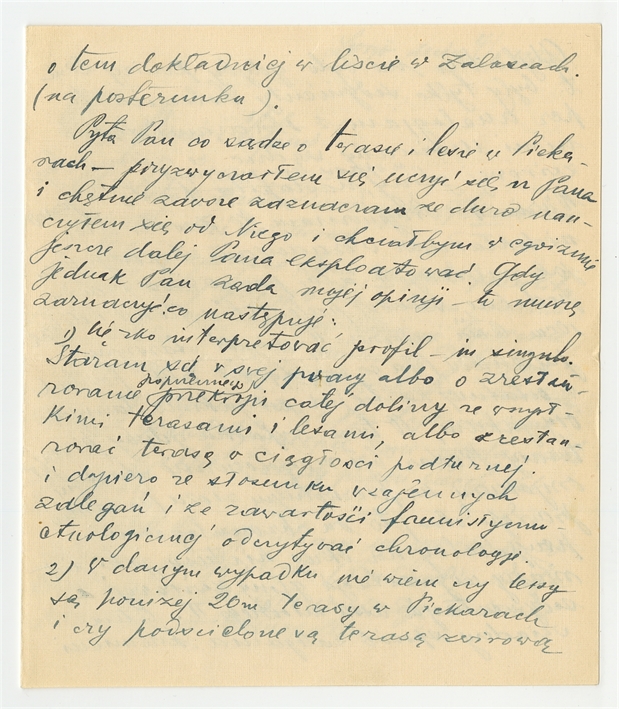 o tem dokładniej w liście w Zaloscach.
(na posterunku).
Pyta Pan co sądzę o terasie i lesie w Pieka-
rach – przyzwyczaiłem się uczyć się u Pana
i chętnie zawsze zaznaczam że dużo nau-
czyłem się od Niego i chciałbym w egoizmie
jeszcze dalej Pana eksploatować. Gdy
jednak Pan żąda mojej opinji – to muszę
zaznaczyć co następuje:
1) Ciężko interpretować profil – in singulo.
Staram się w swej pracy albo o zestawi-
rowanie poprzecznego przekroju całej doliny ze wszyst-
kimi terasami i lesami, albo zestaw-
rować terasę w ciągłości podłużnej.
i dopiero ze stosunku wzajemnych
zalegań i ze zawartości faunistyczno-
etnologicznej odczytywać chronologję.
2) W danym wypadku nie wiem czy lessy
są poniżej 20m terasy w Piekarach
i czy podścielone są terasą żwirową